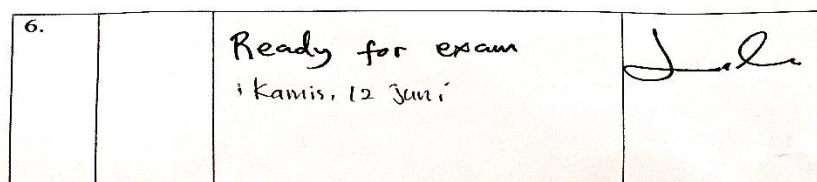 6.
Ready for exam
: Kamis, 12 Juni